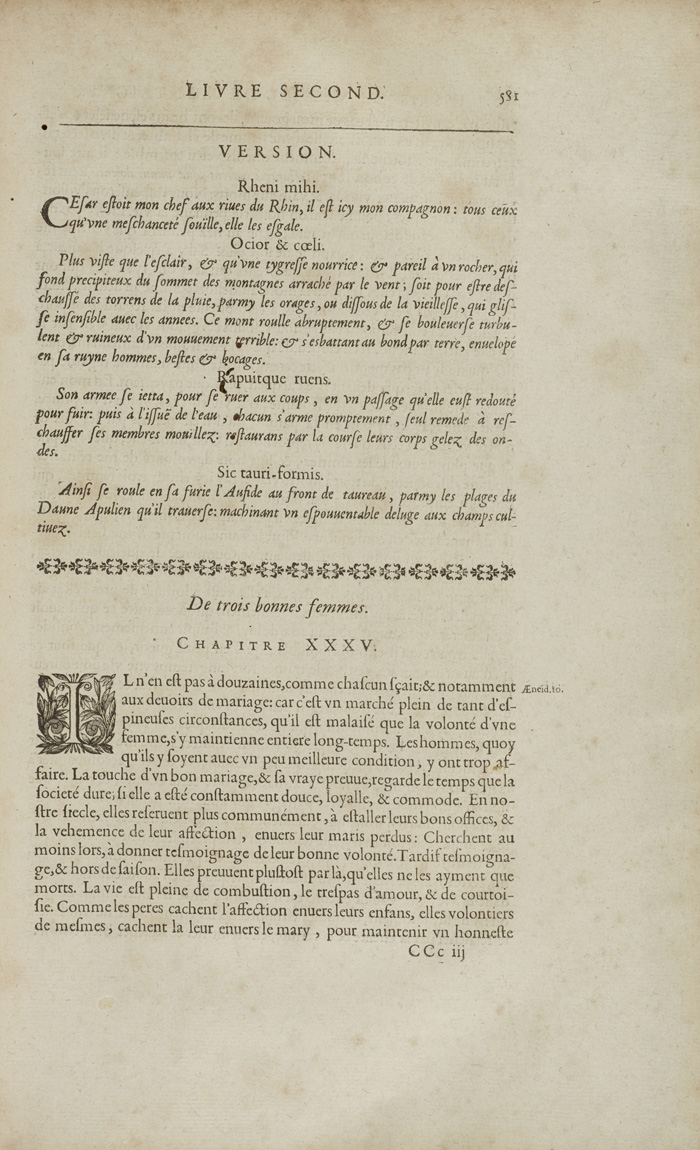 LIVRE SECOND. 581
VERSION.
Rheni mihi.
CEſar eſtoit mon chef aux riues du Rhin, il eſt icy mon compagnon: tous ceux
qu'vne meſchanceté ſouïlle, elle les eſgale.
Ocior & cœli.
Plus viſte que l'eſclair, & qu'vne tygreſſe nourrice: & pareil à vn rocher, qui
fond precipiteux du ſommet des montagnes arraché par le vent; ſoit pour eſtre deſ-
chauſſé des torrens de la pluie, parmy les orages, ou diſſous de la vieilleſſe, qui gliſ-
ſe inſenſible auec les annees. Ce mont roulle abruptement, & ſe bouleuerſe turbu-
lent & ruineux d'vn mouuement terrible: & s'esbattant au bond par terre, enuelope
en ſa ruyne hommes, beſtes & bocages.
Rapuitque ruens.
Son armee ſe ietta, pour ſe ruer aux coups, en vn paſſage qu'elle euſt redouté
pour fuir: puis à l'iſſuë de l'eau, chacun s'arme promptement, ſeul remede à reſ-
chauffer ſes membres mouillez: reſtaurans par la courſe leurs corps gelez des on-
des.
Sic tauri-formis.
Ainſi ſe roule en ſa furie l'Aufide au front de taureau, parmy les plages du
Daune Apulien qu'il trauerſe: machinant vn eſpouuentable deluge aux champs cul-
tiuez.
De trois bonnes femmes.
CHAPITRE XXXV.
IL n'en eſt pas à douzaines, comme chaſcun ſçait; & notamment Æneid. 10.
aux deuoirs de mariage: car c'eſt vn marché plein de tant d'eſ-
pineuſes circonſtances, qu'il eſt malaiſé que la volonté d'vne
femme, s'y maintienne entiere long-temps. Les hommes, quoy
qu'ils y ſoyent auec vn peu meilleure condition, y ont trop af-
faire. La touche d'vn bon mariage, & ſa vraye preuue, regarde le temps que la
ſocieté dure; ſi elle a eſté conſtamment douce, loyalle, & commode. En no-
ſtre ſiecle, elles reſeruent plus communément, à eſtaller leurs bons offices, &
la vehemence de leur affection, enuers leur maris perdus: Cherchent au
moins lors, à donner teſmoignage de leur bonne volonté. Tardif teſmoigna-
ge, & hors de ſaiſon. Elles preuuent pluſtoſt par là, qu'elles ne les ayment que
morts. La vie eſt pleine de combuſtion, le treſpas d'amour, & de courtoi-
ſie. Comme les peres cachent l'affection enuers leurs enfans, elles volontiers
de meſmes, cachent la leur enuers le mary, pour maintenir vn honneſte
CCc iij